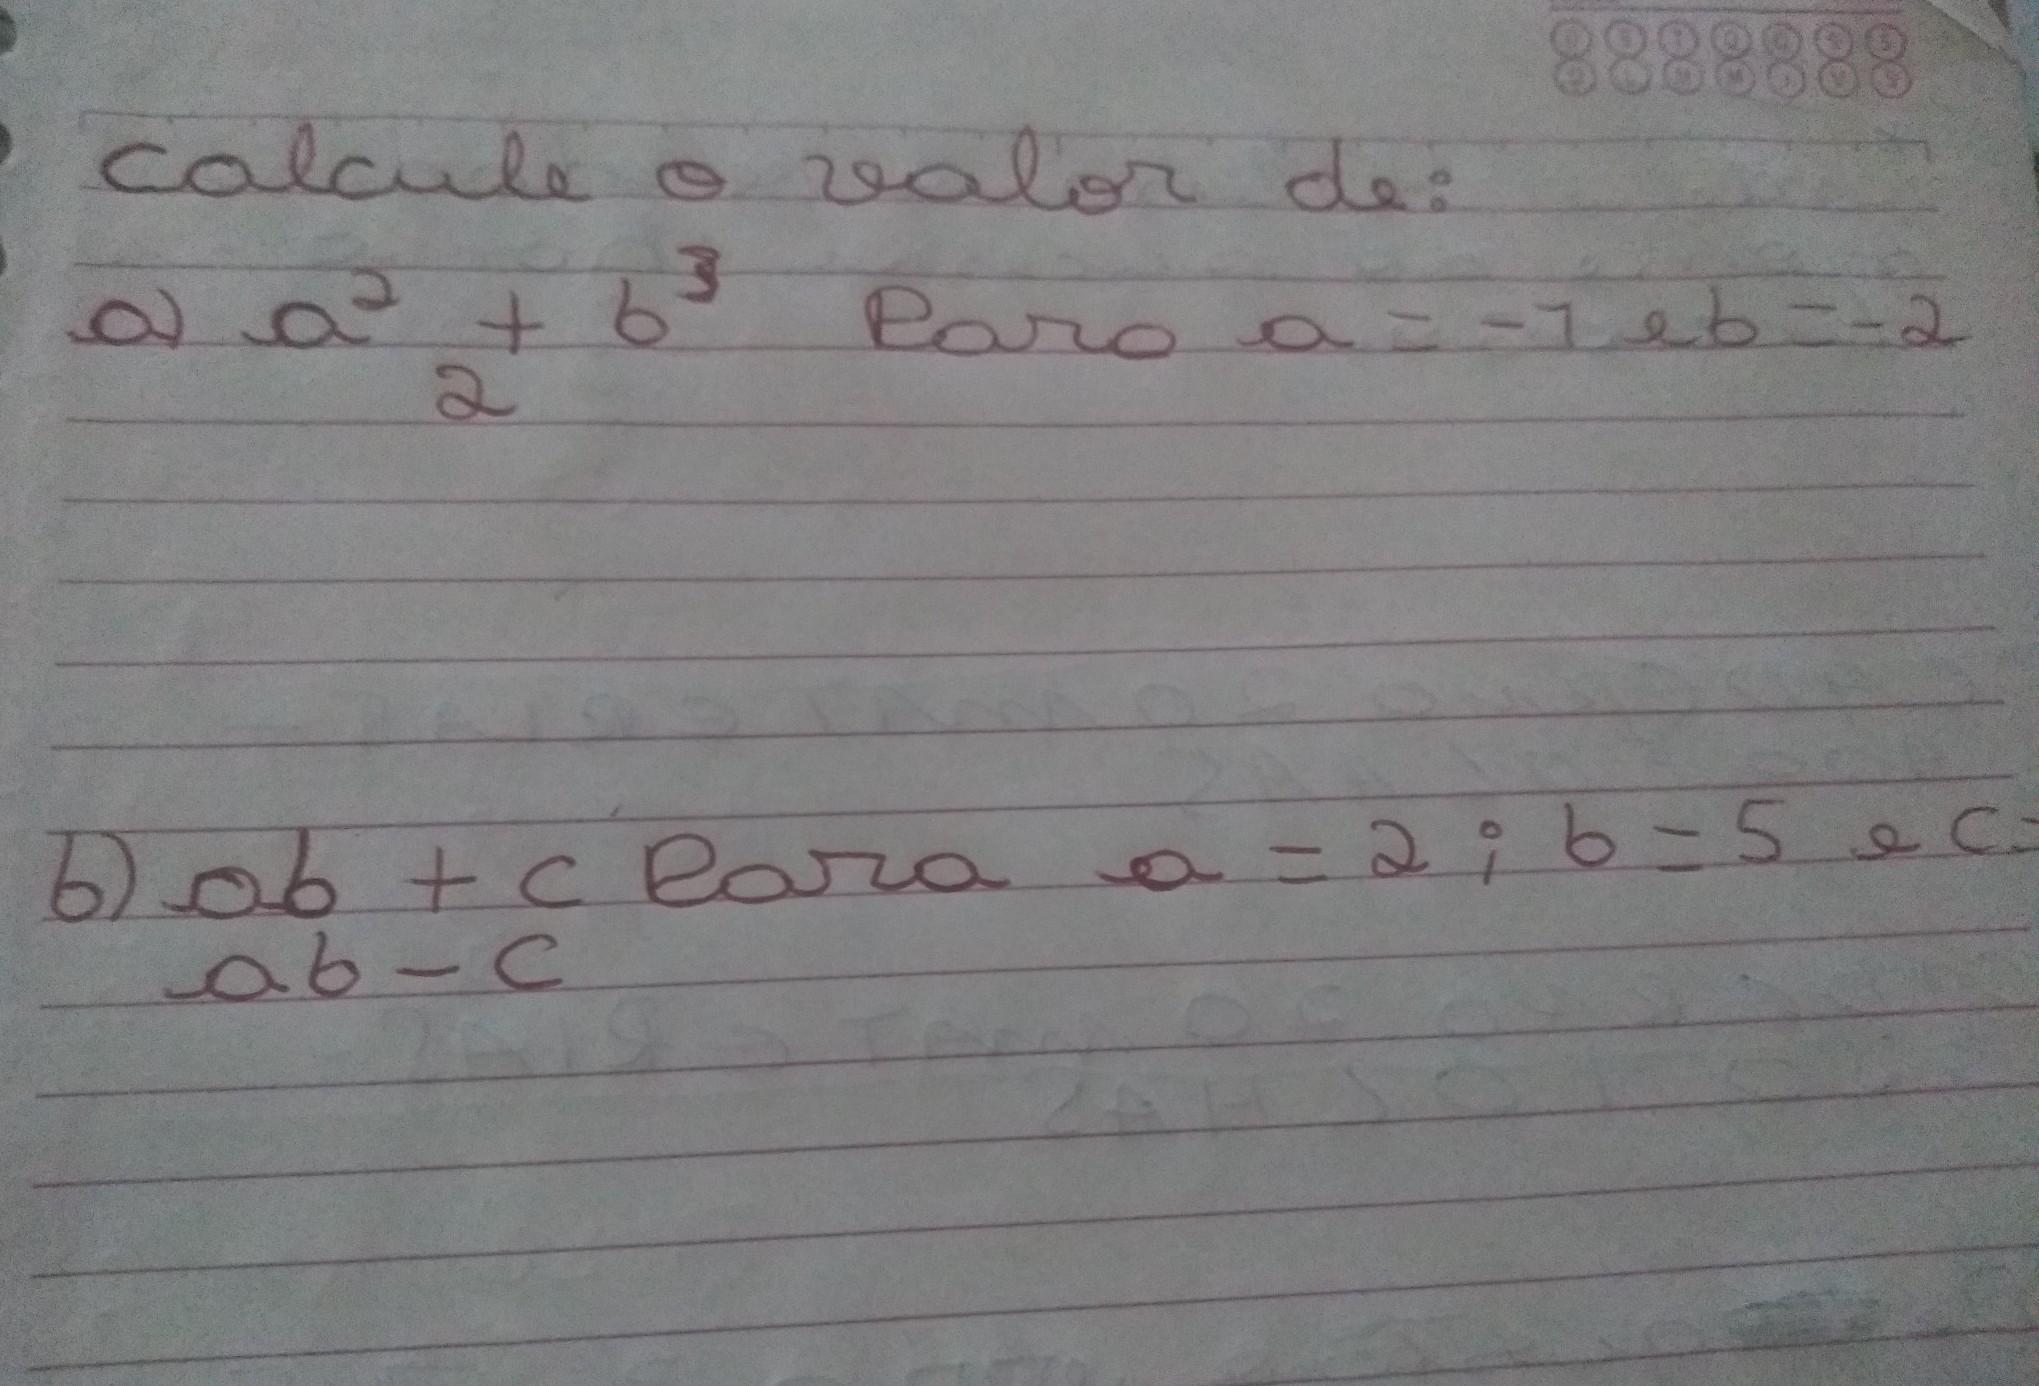 calcule o valor de:
a) a² + b³ Para a = -1 e b = -2
2
b) ab + c Para a = 2 ; b = 5 e c =
ab - c